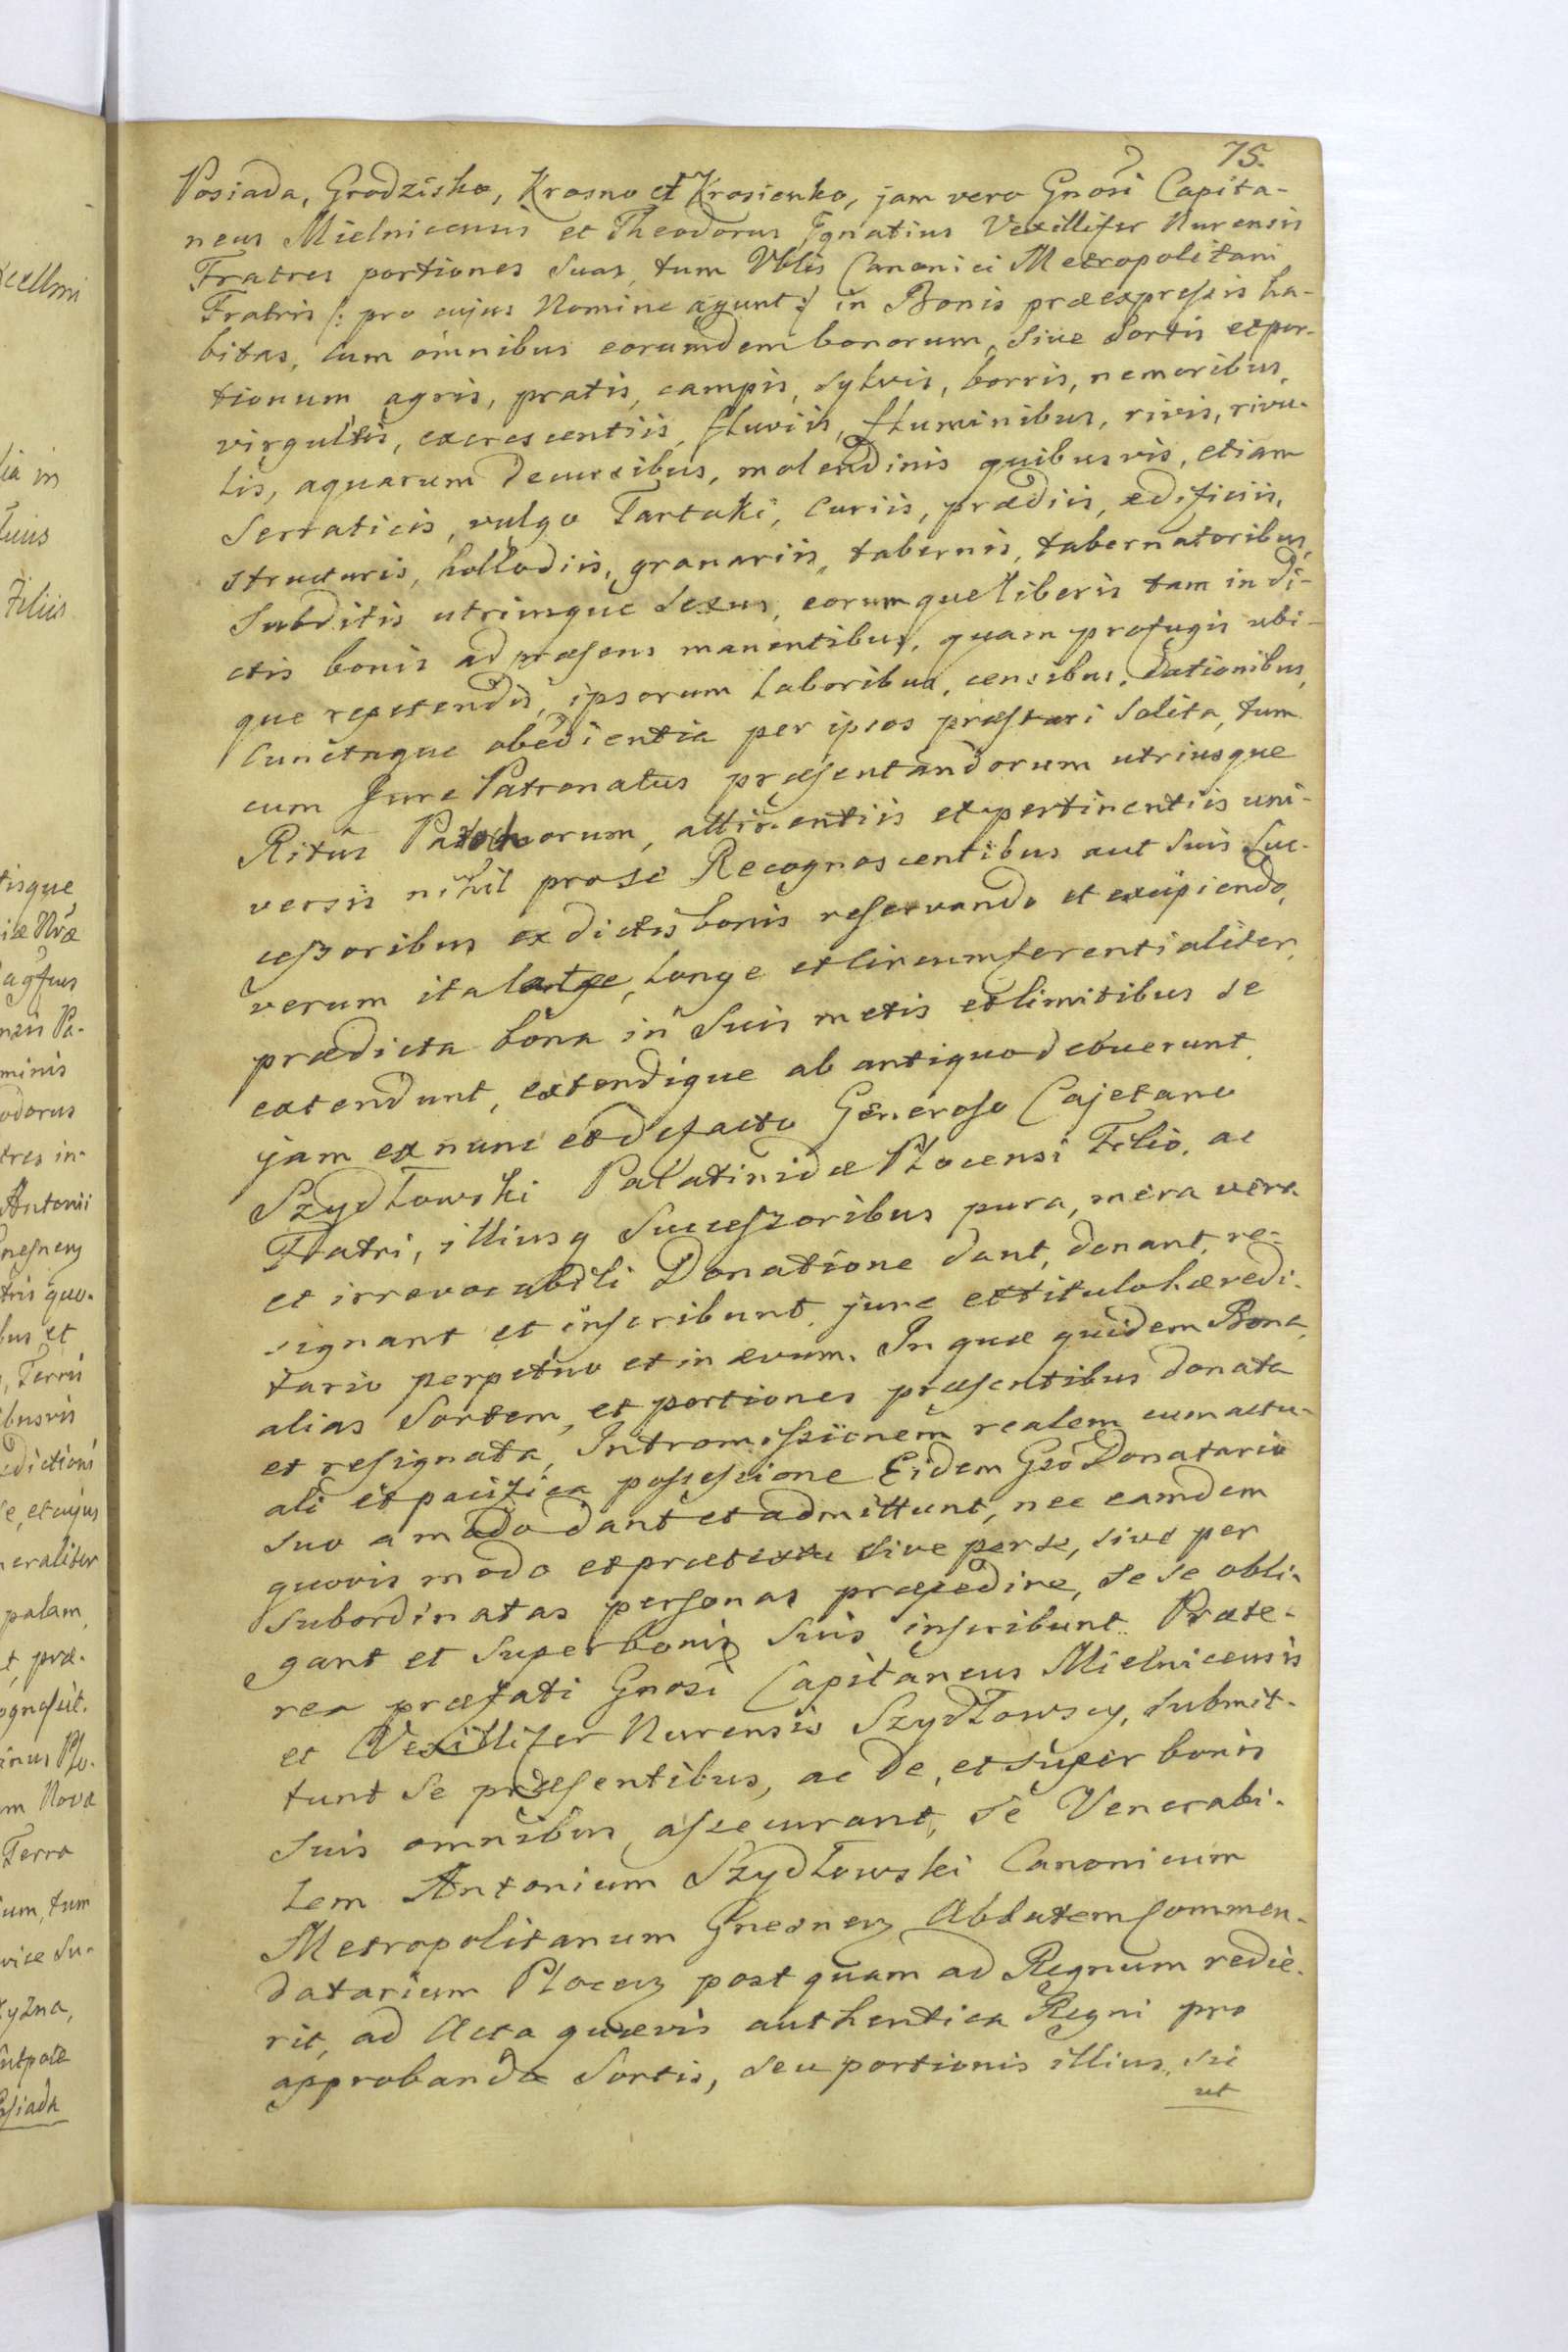 75.
Posiada, Grodzisko, Krosno et Krosienko, jam vero Gnosi Capita-
neus Mielnicensis et Theodorus Ignatius Vexillifer Nurensis
Fratres portiones suas, tum Vblis Canonici Metropolitani
Fratris /: pro cujus Nomine agunt :/ in Bonis præexpreſsis ha-
bitas, cum omnibus eorumdem bonorum, sive sortis et por-
tionum agris, pratis, campis, sylvis, borris, nemoribus,
virgultis, excrescentiis, fluviis, fluminibus, rivis, rivu-
lis, aquarum decursibus, molendinis quibusvis, etiam
Serraticis, vulgo Tartaki, Curiis, prædiis, ædificiis,
structuris, hollodiis, granariis, tabernis, tabernatoribus,
Subditis utriusque Sexus, eorumque liberis tam in di-
ctis bonis ad præsens manentibus, quam profugis ubi-
que repetendis, ipsorum laboribus, censibus, dationibus,
cunctaque obedientia per ipsos præstari solita, tum
cum Jure Patronatus præsentandorum utriusque
Ritûs Parochorum, attinentiis et pertinentiis uni-
versis nihil pro se Recognoscentibus aut suis Suc-
ceſsoribus ex dictis bonis reservando et excipiendo,
verum ita late, longe et circumferentialiter,
prædicta bona in suis metis et limitibus se
extendunt, extendique ab antiquo debuerunt,
jam ex nunc et de facto Generoso Cajetano
Szydłowski Palatinidæ Plocensi Filio, ac
Fratri, illiusq Succeſsoribus pura, mera vera
et irrevocabili Donatione dant, donant, re-
signant et inscribunt, jure et titulo hæredi-
tario perpetuo et in ævum. In quæ quidem Bona,
alias Sortem, et portiones præsentibus donata
et resignata, Intromiſsionem realem cum actu-
ali et pacifica poſseſsione Eidem Gso Donatario
suo a modo dant et admittunt, nec eamdem
quovis modo et prætextu sive per se, sive per
subordinatas personas præpedire, se se obli-
gant et super bonis suis inscribunt. Præte-
rea præfati Gnosi Capitaneus Mielnicensis
et Vexillifer Nurensis Szydłowscy, submit-
tunt se præsentibus, ac de, et super bonis
suis omnibus aſsecurant, se Venerabi-
lem Antonium Szydłowski Canonicum
Metropolitanum Gnesnen Abbatem Commen-
datarium Plocen post quam ad Regnum redie-
rit, ad Acta quævis authentica Regni pro
approbanda Sortis, seu portionis illius, sic
ut